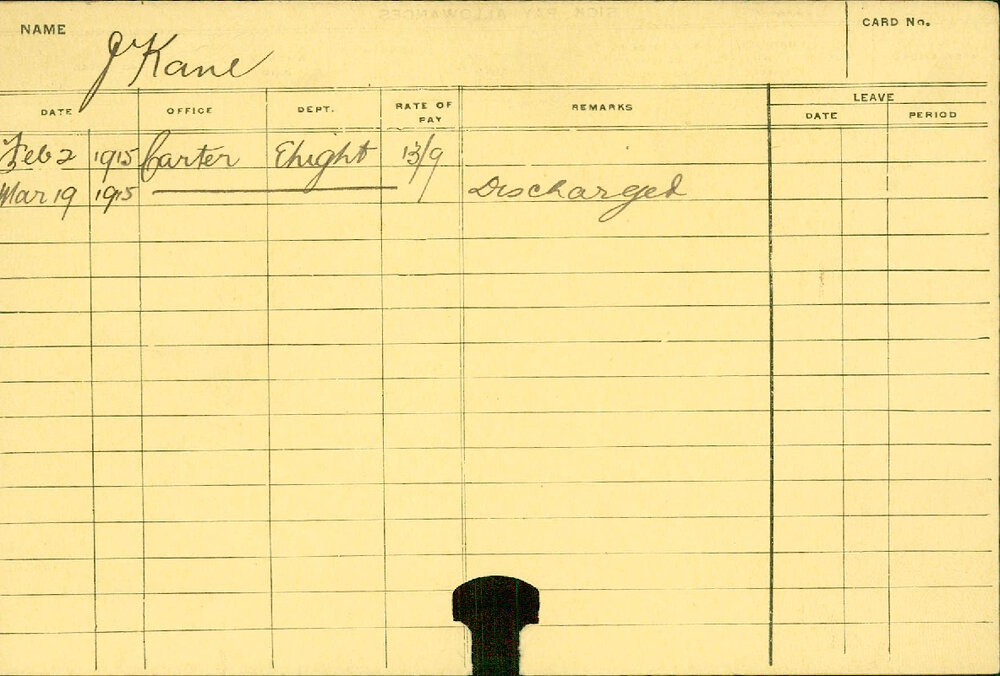 NAME J Kane CARD No.
DATE OFFICE DEPT. RATE OF PAY REMARKS LEAVE
DATE PERIOD
Feb 2 1915 Carter Elight 13/9
Mar 19 1915 Discharged